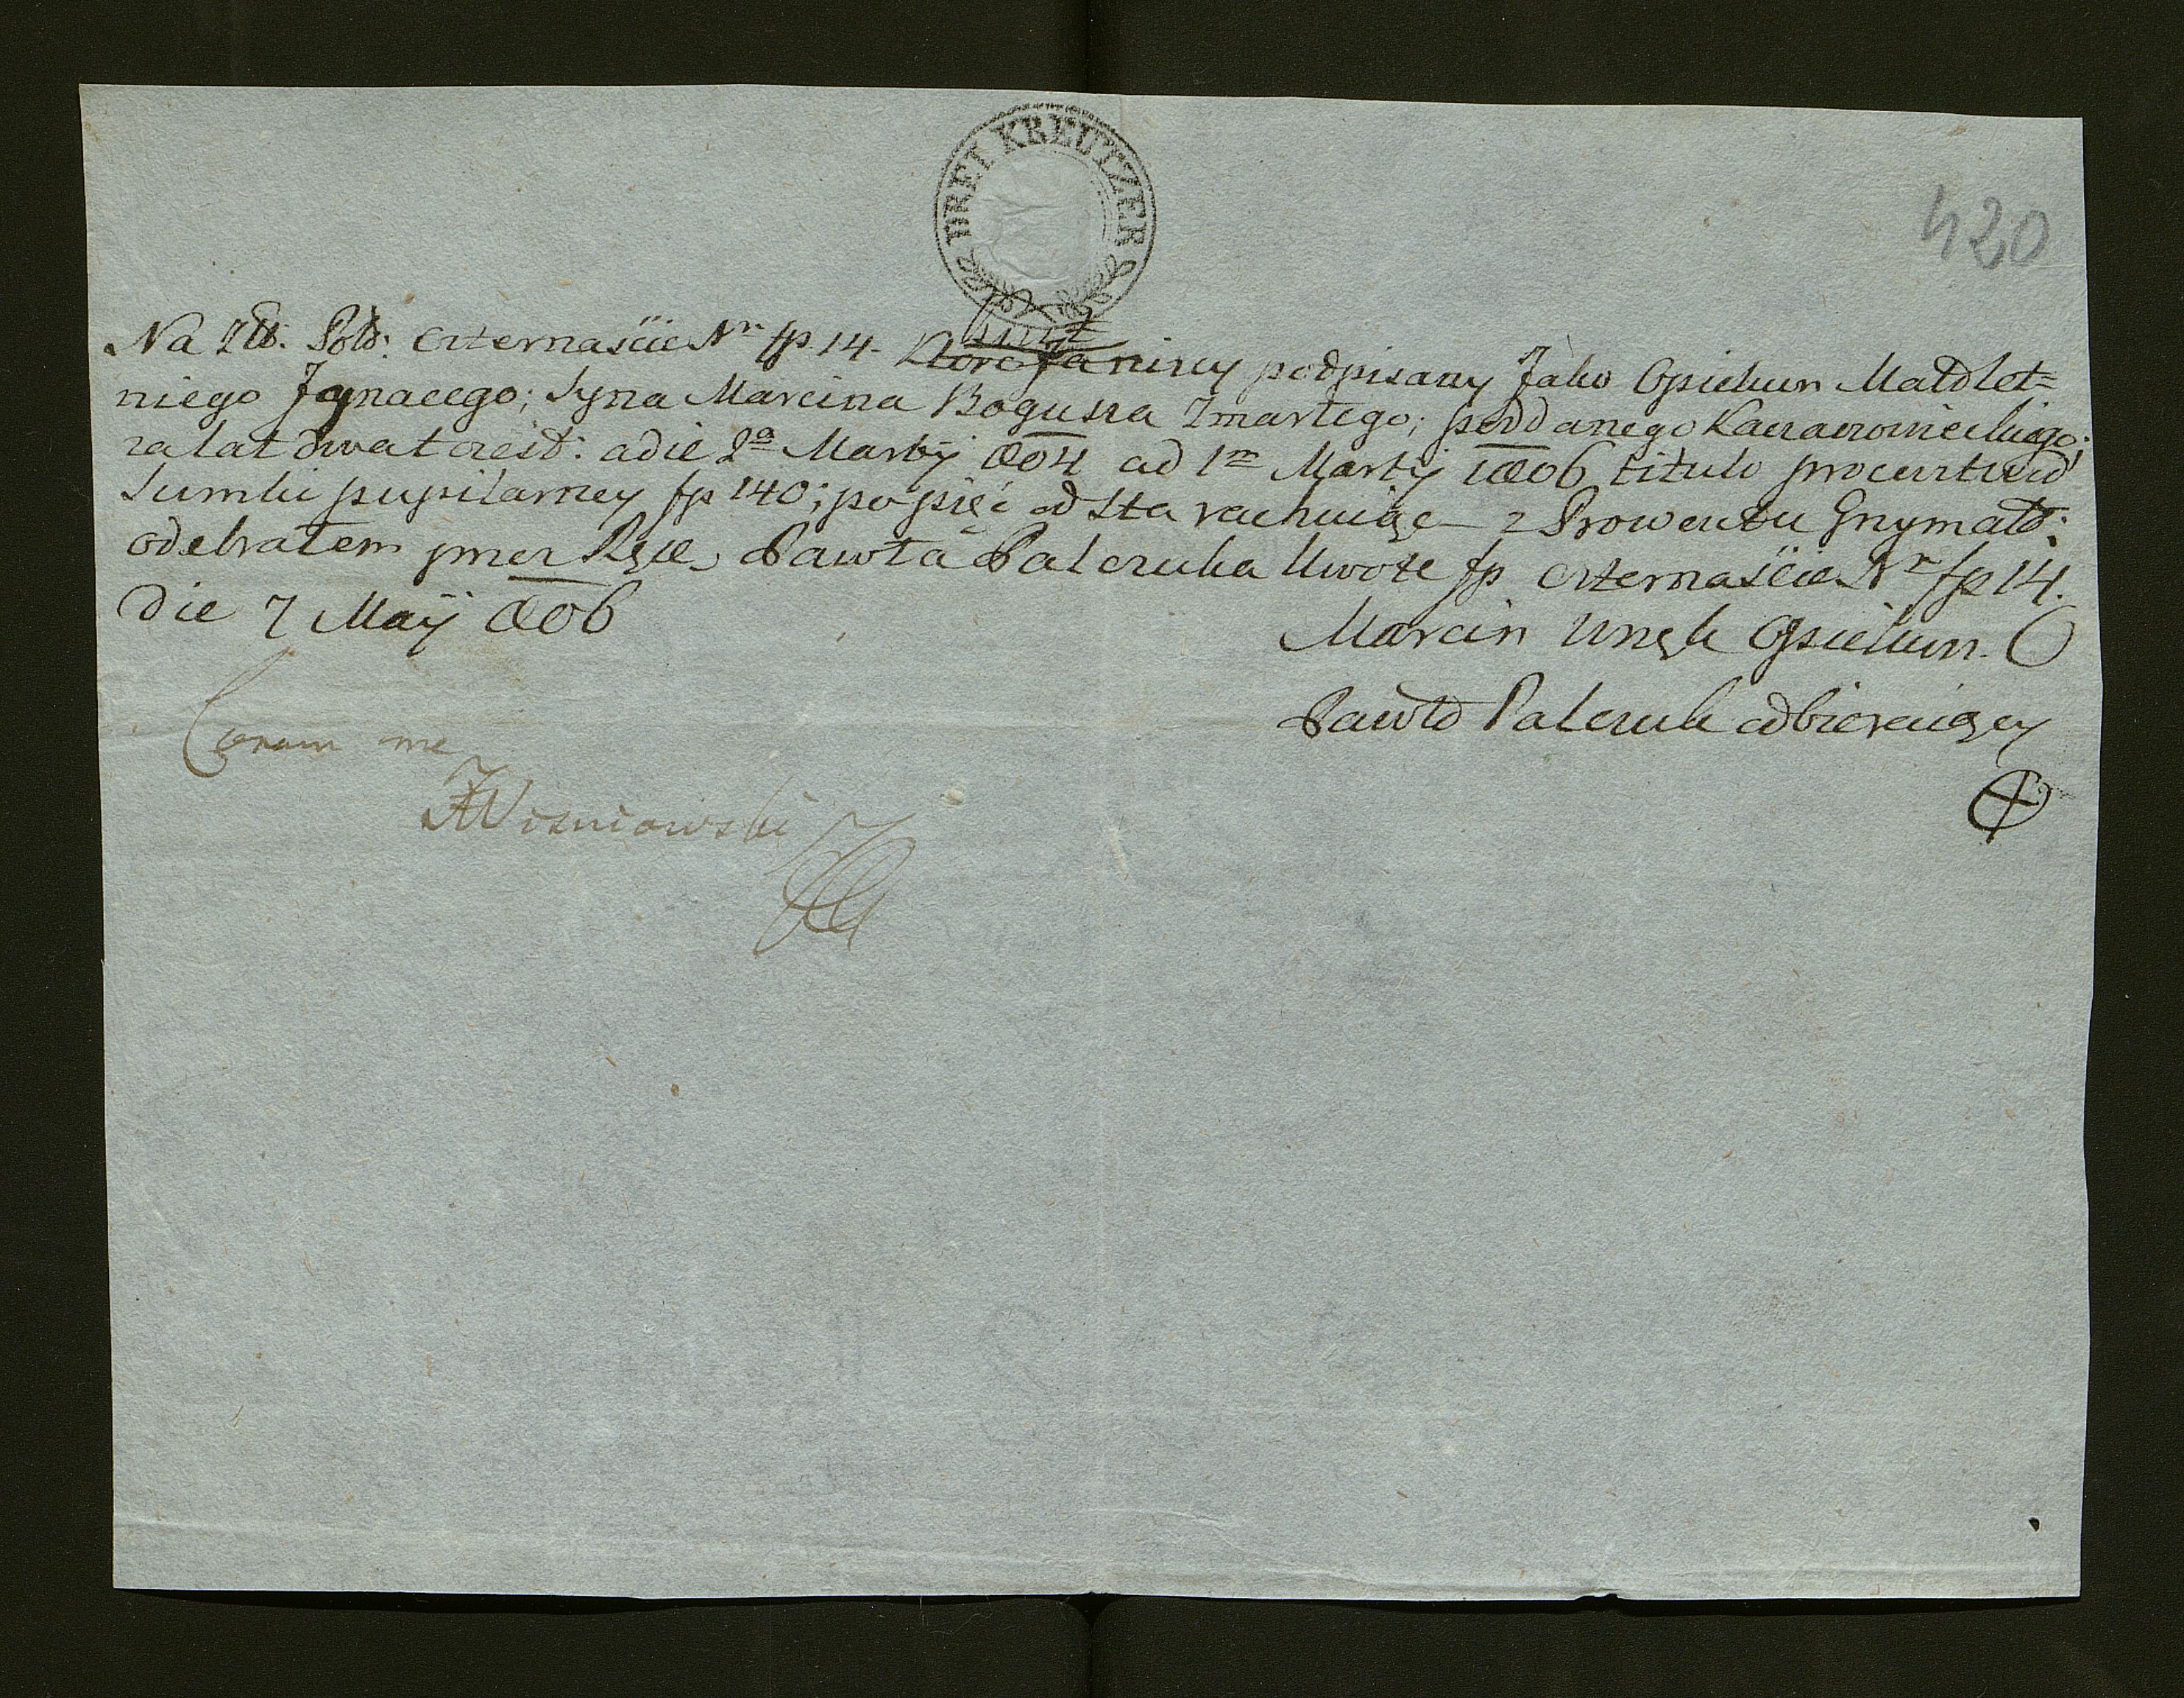 DREI KREUTZER
420
Na Złł: Pols: czternaście Nr fp 14. Które Ja niżey podpisany Jako Opiekun Małolet=
niego Jgnacego; Syna Marcina Bogusza Zmarłego; poddanego Kaczarowieckiego;
za lat dwa t: iest: a die 2a Martÿ 804 ad 1m Martÿ 1806 titulo procentu od
Sumki pupilarney fp 140; po pięć od Sta rachuiąc z Prowentu Grzymał:
odebrałem przez Ręce Pawła Palczuka Kwotę fp czternaście Nr fp 14.
Die 7 Maÿ 806
Marcin Unęk Opiekun. O
Pawło Palczuk odbieraiący
Coram me
JWisniowski